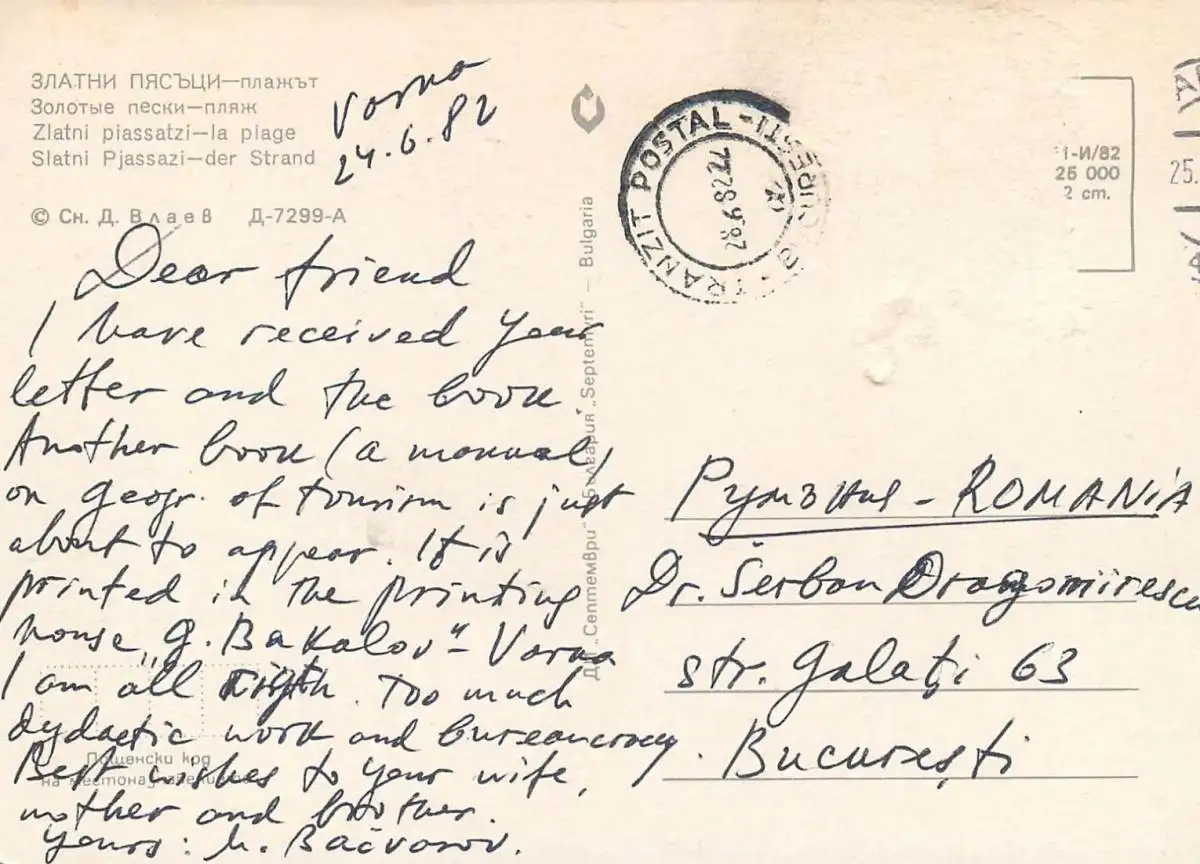 ЗЛАТНИ ПЯСЪЦИ—плажът
Золотые пески—пляж
Zlatni piassatzi—la plage
Slatni Pjassazi—der Strand
© Сн. Д. Влаев Д-7299-А
Varna
24.6.82
Dear friend
I have received your
letter and the book
Another book (a manual)
on geogr. of tourism is just
about to appear. It is
printed in the printing
house „G. Bakalov" – Varna
I am all rigth. Too much
dydactic work and bureaucracy.
Best wishes to your wife,
mother and brother.
Yours: M. Bačvarov.
Пощенски код
на местоназначението
ДП „Септември" България „Septemvri" — Bulgaria
TRANZIT POSTAL
BUCUREȘTI
1-И/82
25 000
2 cm.
25.
Румъния - ROMANIA
Dr. Šerban Dragomirescu
str. Galaţi 63
Bucureşti